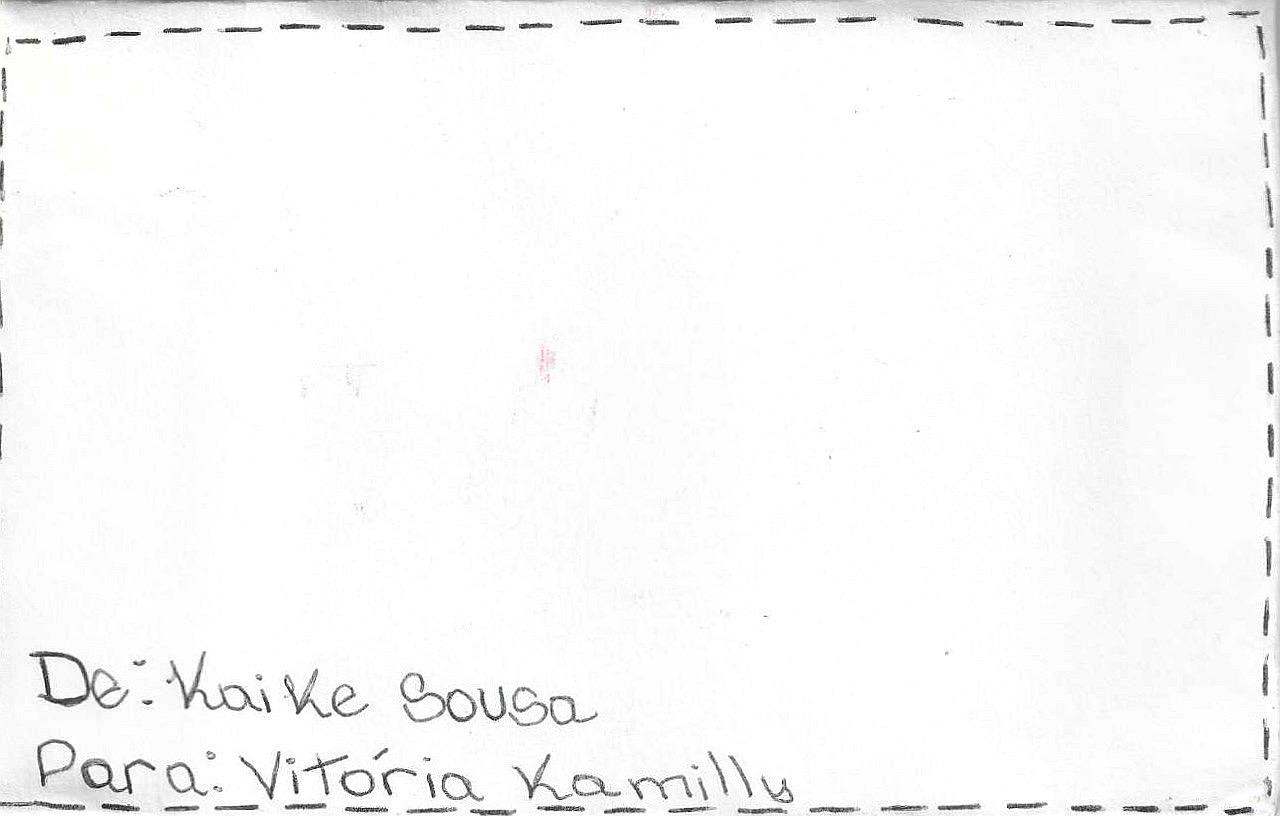 De: Kaike Sousa
Para: Vitória Kamilly